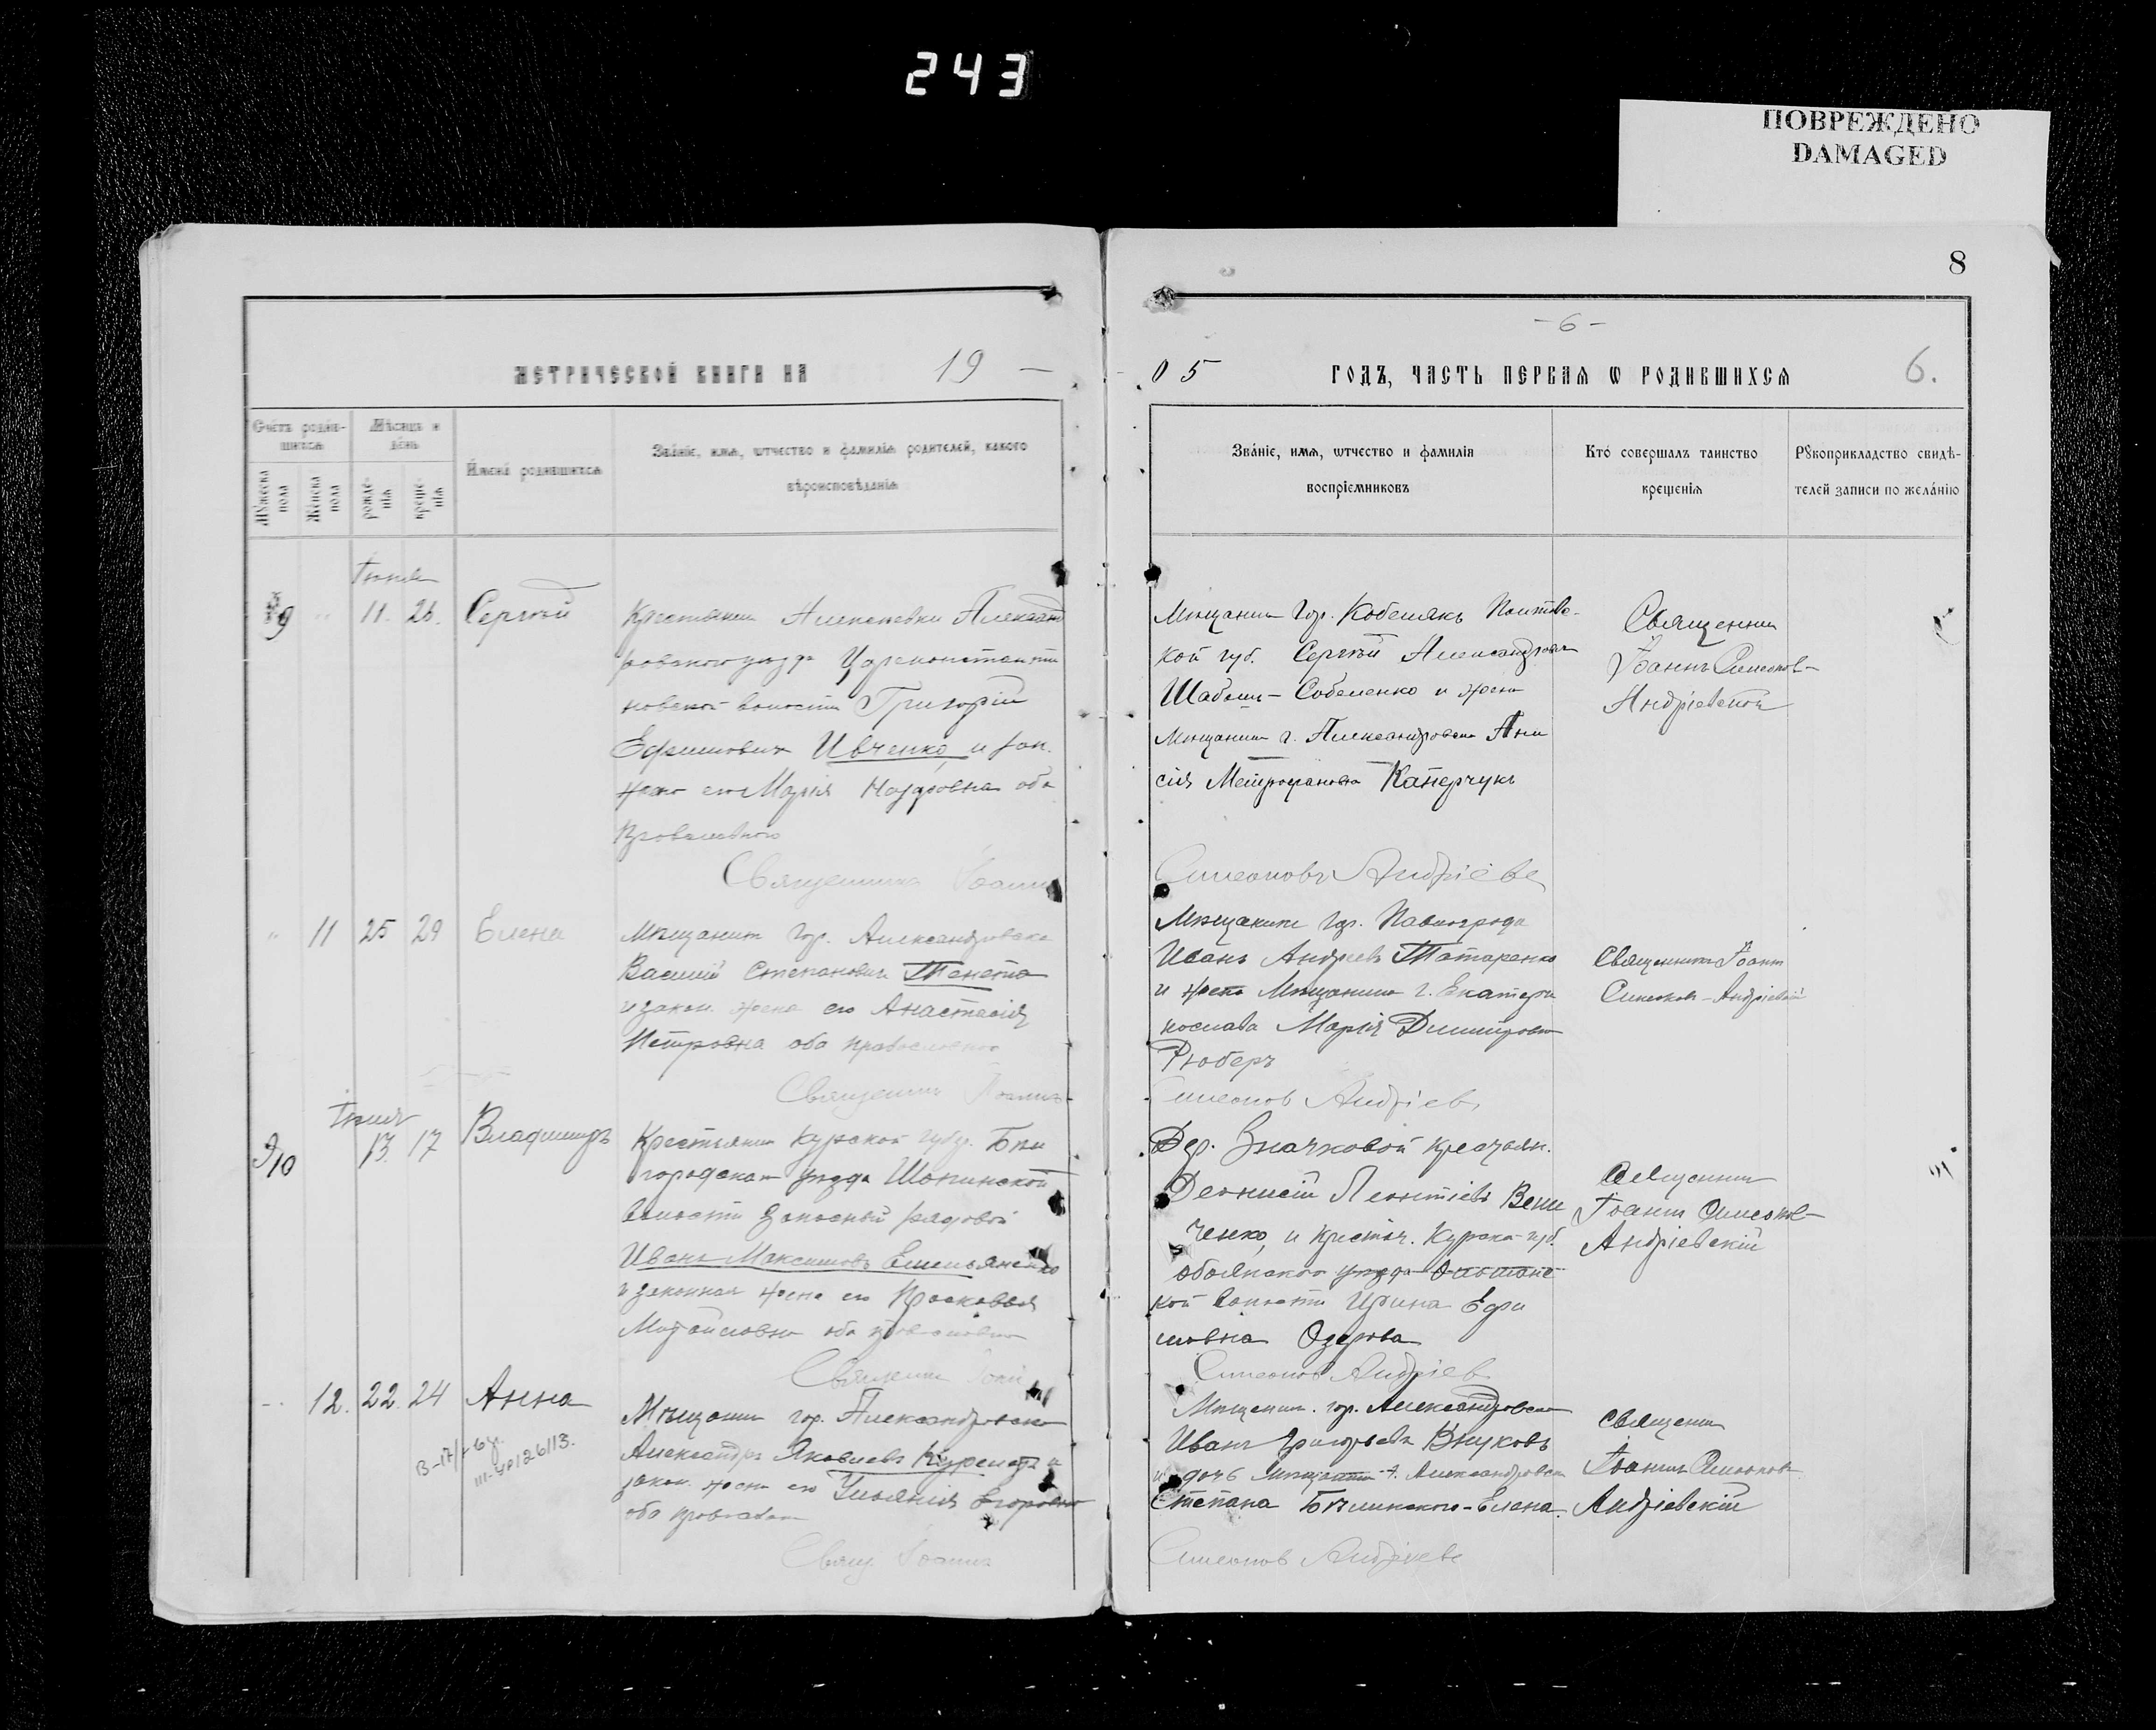 243
ПОВРЕЖДЕНО
DAMAGED
8
- 6 -
МЕТРИЧЕСКОЙ КНИГИ НА 19 —
05 ГОДЪ, ЧАСТЬ ПЕРВАЯ Ѡ РОДИВШИХСЯ 6.
Счетъ родив-
шихся
Мѣсяцъ и
день
Мужеска пола
Женска пола
рожде-
нія
креще-
нія
Имена родившихся
Званіе, имя, ѿчество и фамилія родителей, какого
вѣроисповѣданія
Званіе, имя, ѿчество и фамилія
воспріемниковъ
Кто совершалъ таинство
крещенія
Рꙋкоприкладство свидѣ-
телей записи по желанію
9 11 26. Сергѣй
Крестьянин Александ
ровскаго уѣзда Цареконстанти
новской волости Григорій
Ефимович Ивченко и зак.
жена его Марія оба
Православнаго
Священникъ Іоаннъ
Мѣщанин гор. Кобелякъ Полтавс-
кой губ. Сергѣй Александров
Собеленко и жена
Мѣщанин г. Александровска Ани
сія Митрофановна Каперчукъ
Священник
Іоаннъ Симеонов-
Андріевскій
Симеоновъ Андріевс
11 25 29 Елена
Мѣщанин гор. Александровска
Василій Степанович Тенета
и закон. жена его Анастасія
Петровна оба православнаго
Священник Іоаннъ
Мѣщанин гор. Павлограда
Иван Андреевъ Татаренко
и жена Мѣщанина г. Екатери
нослава Марія Димитров
Рюберъ
Священник Іоанн
Симеонов-Андріевскій
Симеонов Андріев
Іюля
10 13. 17 Владимиръ
Крестьянин Курской губер. Бѣл
городскаго уѣзда Шопинской
волости запасный рядовой
Иванъ Максимовъ Емельяненко
и законная жена его Прасковья
Михайловна оба православн
Священник Іоан
Дер. Значковой крестьян.
Деонисій Леонтіевъ Вели
ченко, и крестьян. Курской губ.
обоянскаго уѣзда
кой волости Ирина Ефи
мовна Озерова
Священник
Іоанн Симеонов-
Андріевскій
Симеонов Андріев
12. 22. 24 Анна
Мѣщанин гор. Александровска
Александръ Яковлевъ и
закон. жена его Ульянія Егоровна
оба православн
Свящ. Іоаннъ
Мѣщанин. гор. Александровска
Иванъ Григорьевъ Внуковъ
и дочь мѣщанина г. Александровска
Степана Бѣлинскаго-Елена.
Священ
Іоаннъ Симеонов
Андріевскій
Симеонов Андріевс